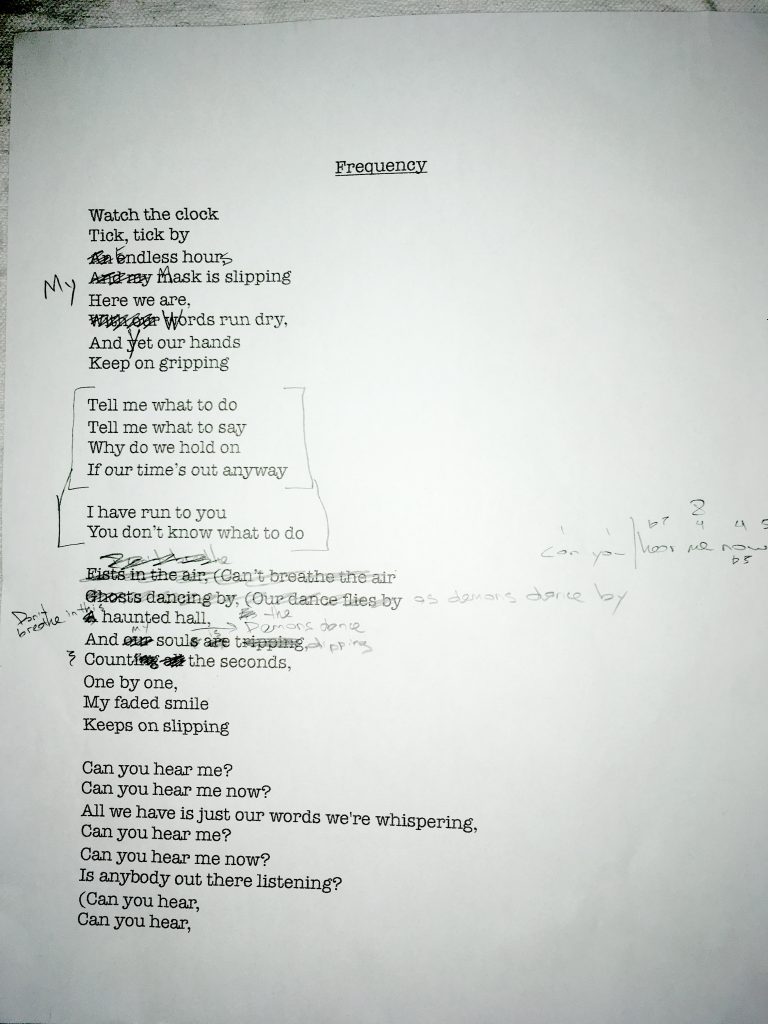 Frequency
Watch the clock
Tick, tick by
An Endless hours
My And my Mask is slipping
Here we are,
With our Words run dry,
And Yet our hands
Keep on gripping
Tell me what to do
Tell me what to say
Why do we hold on
If our time's out anyway
I have run to you
You don't know what to do
Can you hear me now
b7 8 4 4 5
b5
Fists in the air, (Can't breathe the air
Ghosts dancing by, (Our dance flies by as demons dance by
Don't breathe in this
A haunted hall, the
Demons dance
And our my souls is are tripping, slipping
& Counting all the seconds,
One by one,
My faded smile
Keeps on slipping
Can you hear me?
Can you hear me now?
All we have is just our words we're whispering,
Can you hear me?
Can you hear me now?
Is anybody out there listening?
(Can you hear,
Can you hear,